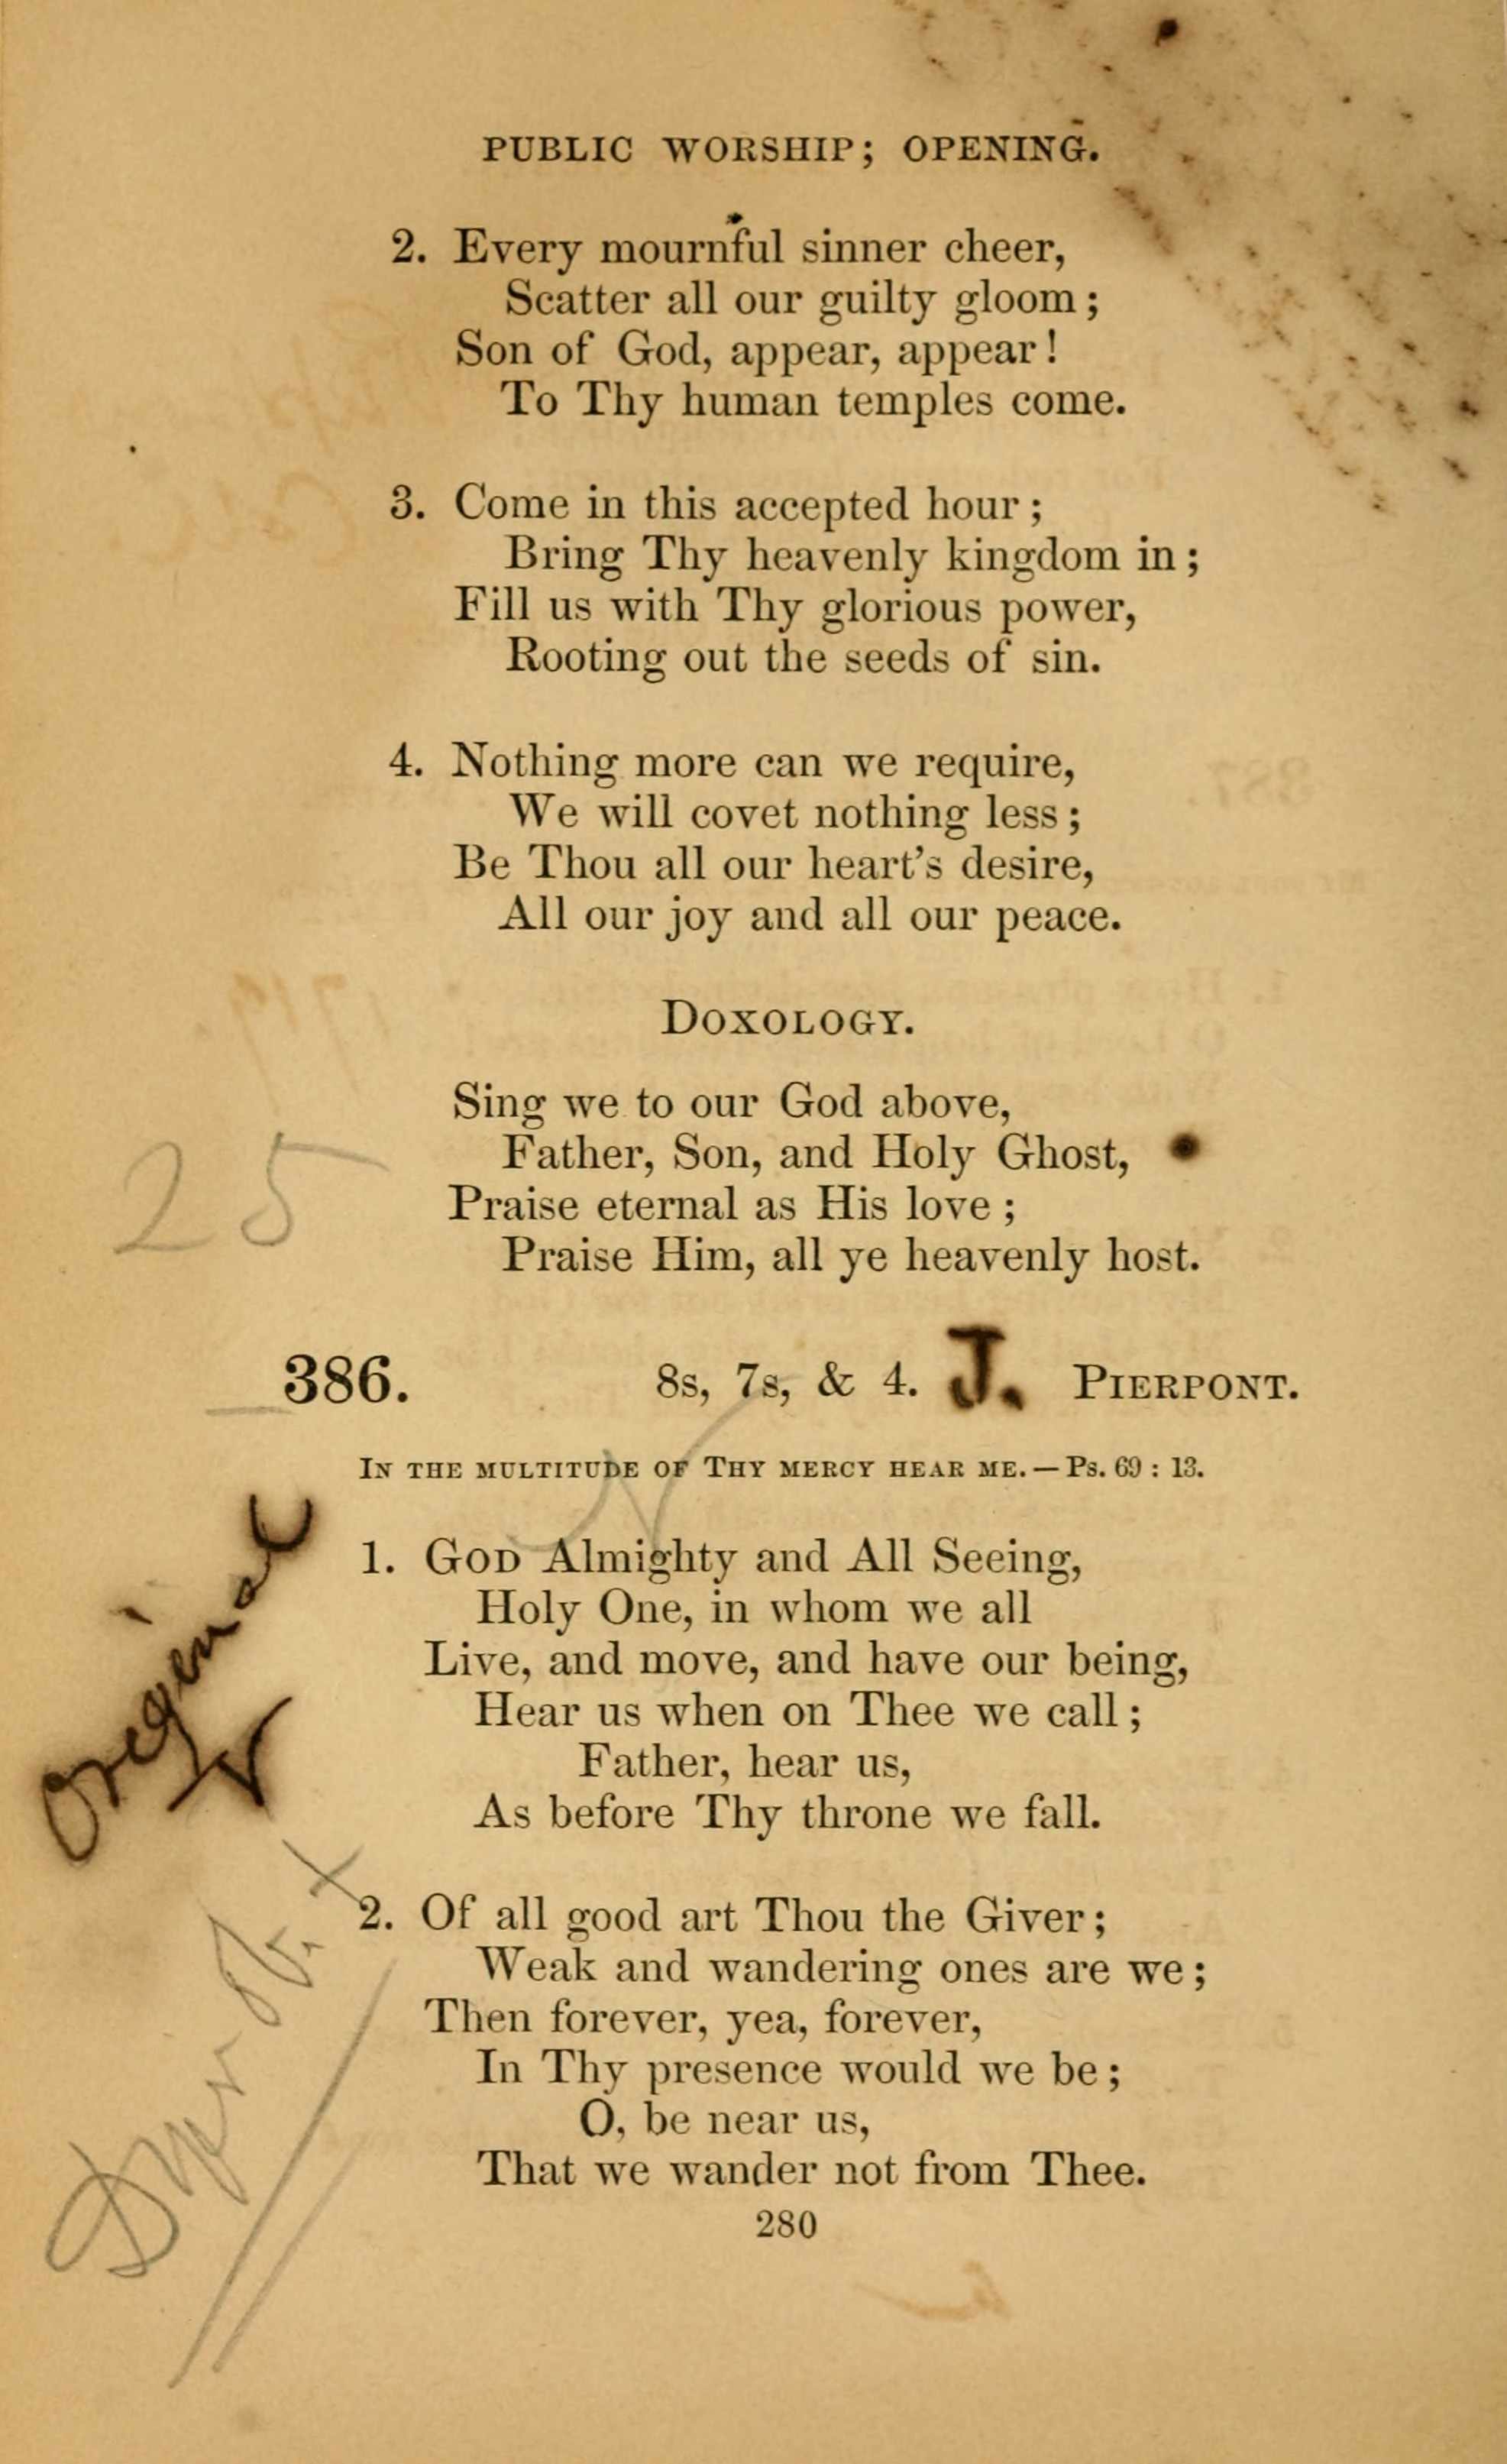 PUBLIC WORSHIP; OPENING.
2. Every mournful sinner cheer,
Scatter all our guilty gloom;
Son of God, appear, appear!
To Thy human temples come.
3. Come in this accepted hour;
Bring Thy heavenly kingdom in;
Fill us with Thy glorious power,
Rooting out the seeds of sin.
4. Nothing more can we require,
We will covet nothing less;
Be Thou all our heart's desire,
All our joy and all our peace.
DOXOLOGY.
Sing we to our God above,
Father, Son, and Holy Ghost,
25
Praise eternal as His love;
Praise Him, all ye heavenly host.
386. 8s, 7s, & 4. J. PIERPONT.
IN THE MULTITUDE OF THY MERCY HEAR ME. — Ps. 69 : 13.
1. GOD Almighty and All Seeing,
Holy One, in whom we all
Live, and move, and have our being,
Hear us when on Thee we call;
Father, hear us,
As before Thy throne we fall.
original
2. Of all good art Thou the Giver;
Weak and wandering ones are we;
Then forever, yea, forever,
In Thy presence would we be;
O, be near us,
That we wander not from Thee.
280